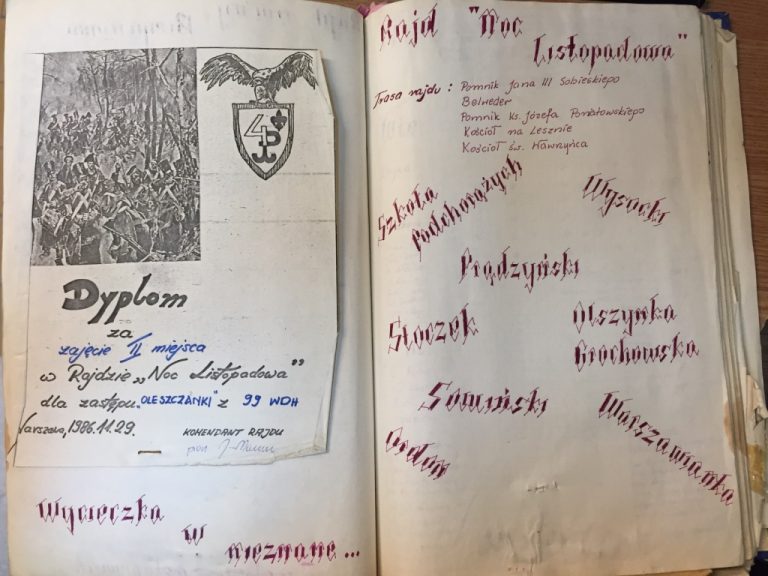 Dyplom
za
zajęcie II miejsca
w Rajdzie „Noc Listopadowa”
dla zastępu „OLESZCZANKI” z 99 WDH
Warszawa, 1986.11.29. KOMENDANT RAJDU
Wycieczka
w
nieznane...
Rajd "Noc
Listopadowa"
Trasa rajdu: Pomnik Jana III Sobieskiego
Belweder
Pomnik Ks. Józefa Poniatowskiego
Kościół na Lesznie
Kościół św. Wawrzyńca
Szkoła
Podchorążych
Wysocki
Prądzyński
Stoczek
Olszynka
Grochowska
Sowiński
Warszawianka
Ordon